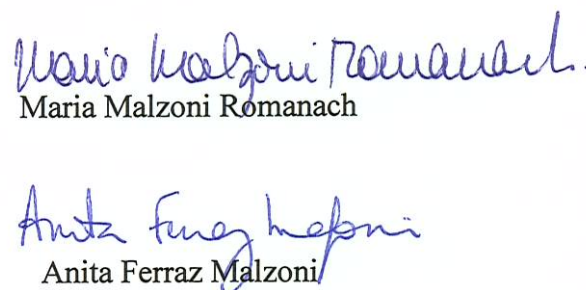 Maria Malzoni Romanach.
Maria Malzoni Romanach
Anita Ferraz Malzoni
Anita Ferraz Malzoni